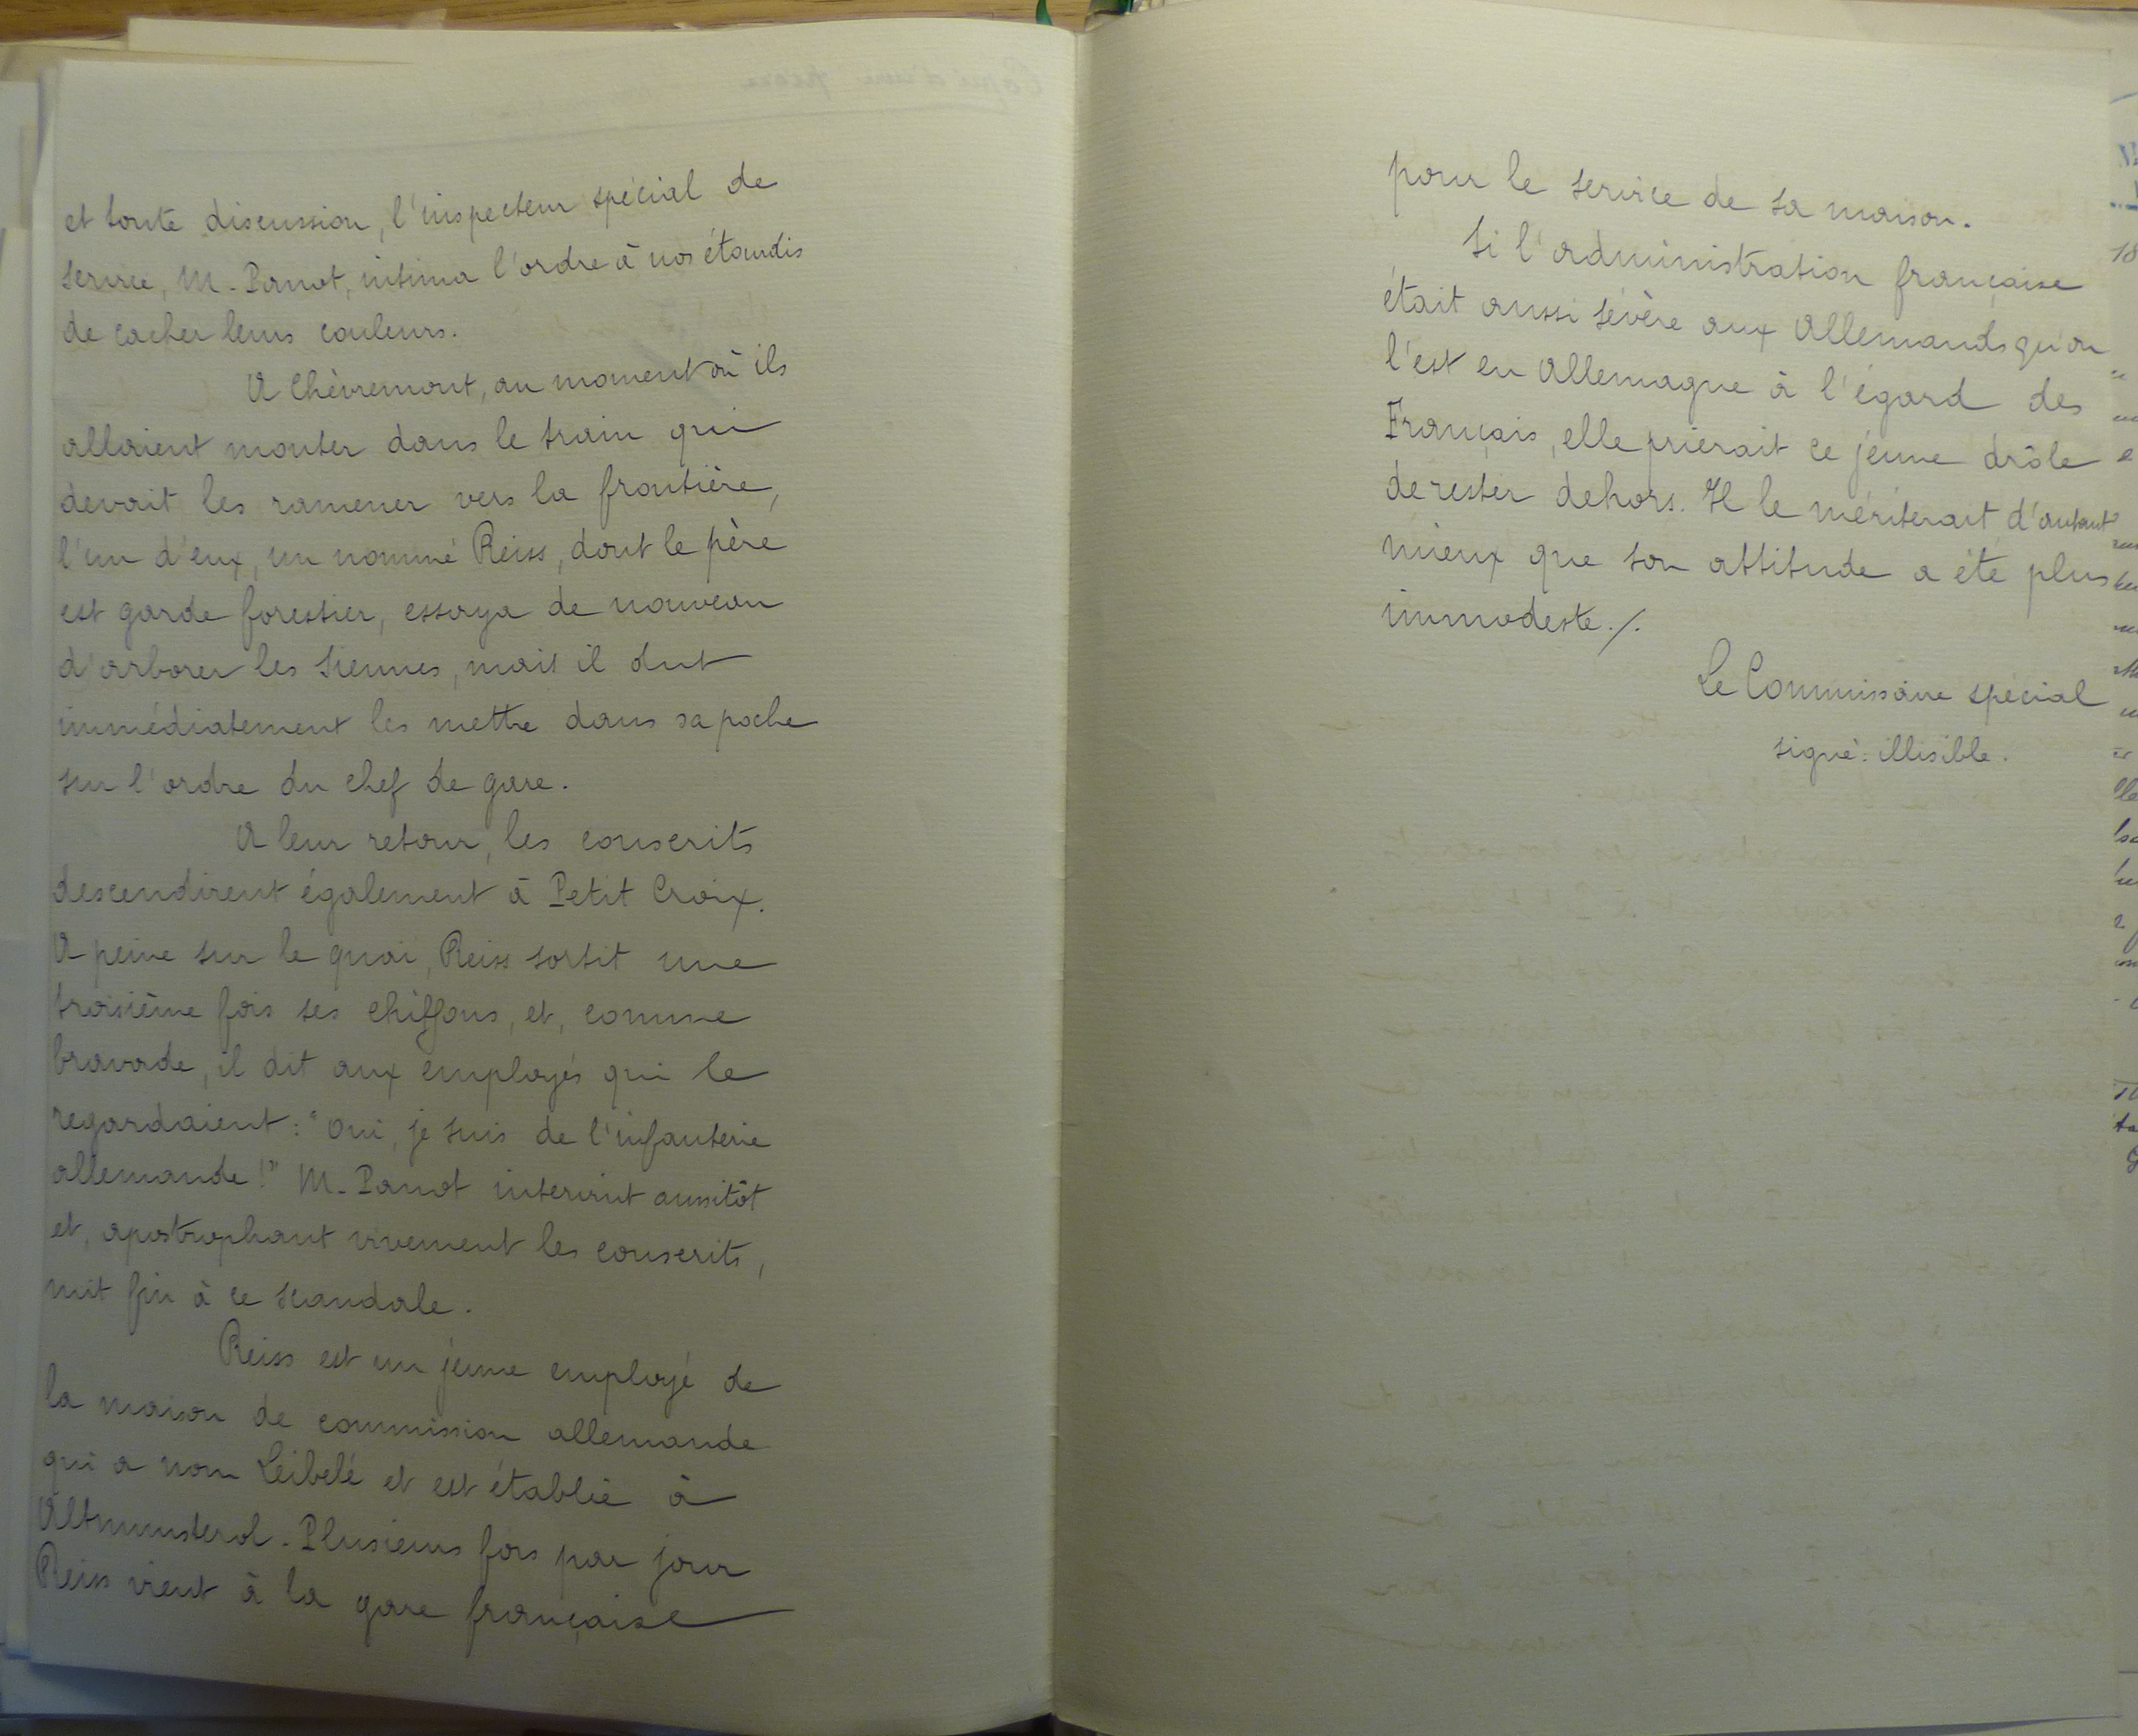 et toute discussion, l'inspecteur spécial de
service, M. Panot, intima l'ordre à nos étourdis
de cacher leurs couleurs.
A Chèvremont, au moment où ils
allaient monter dans le train qui
devait les ramener vers la frontière,
l'un d'eux, un nommé Reiss, dont le père
est garde forestier, essaya de nouveau
d'arborer les siennes, mais il dut
immédiatement les mettre dans sa poche
sur l'ordre du chef de gare.
A leur retour, les conscrits
descendirent également à Petit Croix.
A peine sur le quai, Reiss sortit une
troisième fois ses chiffons, et, comme
bravade, il dit aux employés qui le
regardaient : "Oui, je suis de l'infanterie
allemande !" M. Panot intervint aussitôt
et, apostrophant vivement les conscrits,
mit fin à ce scandale.
Reiss est un jeune employé de
la maison de commission allemande
qui a nom Leibelé et est établie à
Altmunsterol. Plusieurs fois par jour
Reiss vient à la gare française
pour le service de sa maison.
Si l'administration française
était aussi sévère aux Allemands qu'on
l'est en Allemagne à l'égard des
Français, elle prierait ce jeune drôle
de rester dehors. Il le mériterait d'autant
mieux que son attitude a été plus
immodeste./.
Le Commissaire spécial
signé: illisible.